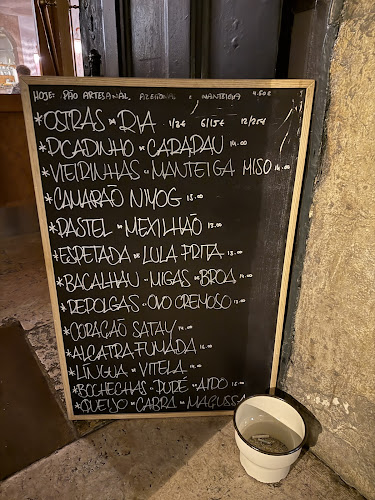 HOJE: PÃO ARTESANAL, AZEITONAS E MANTEIGA 4.50€
*OSTRAS DA RIA 1/3€ 6/15€ 12/25€
*PICADINHO DE CARAPAU 14.00
*VIEIRINHAS - MANTEIGA MISO 14.00
*CAMARÃO NIYOG 15.00
*PASTEL DE MEXILHÃO 13.00
*ESPETADA DE LULA FRITA 13.00
*BACALHAU - MIGAS DE BROA 14.00
*REPOLGAS - OVO CREMOSO 13.00
*CORAÇÃO SATAY 14.00
*ALCATRA FUMADA 16.00
*LÍNGUA DE VITELA 14.00
*BOCHECHAS - PURÉ DE AIPO 16.00
*QUEIJO DE CABRA